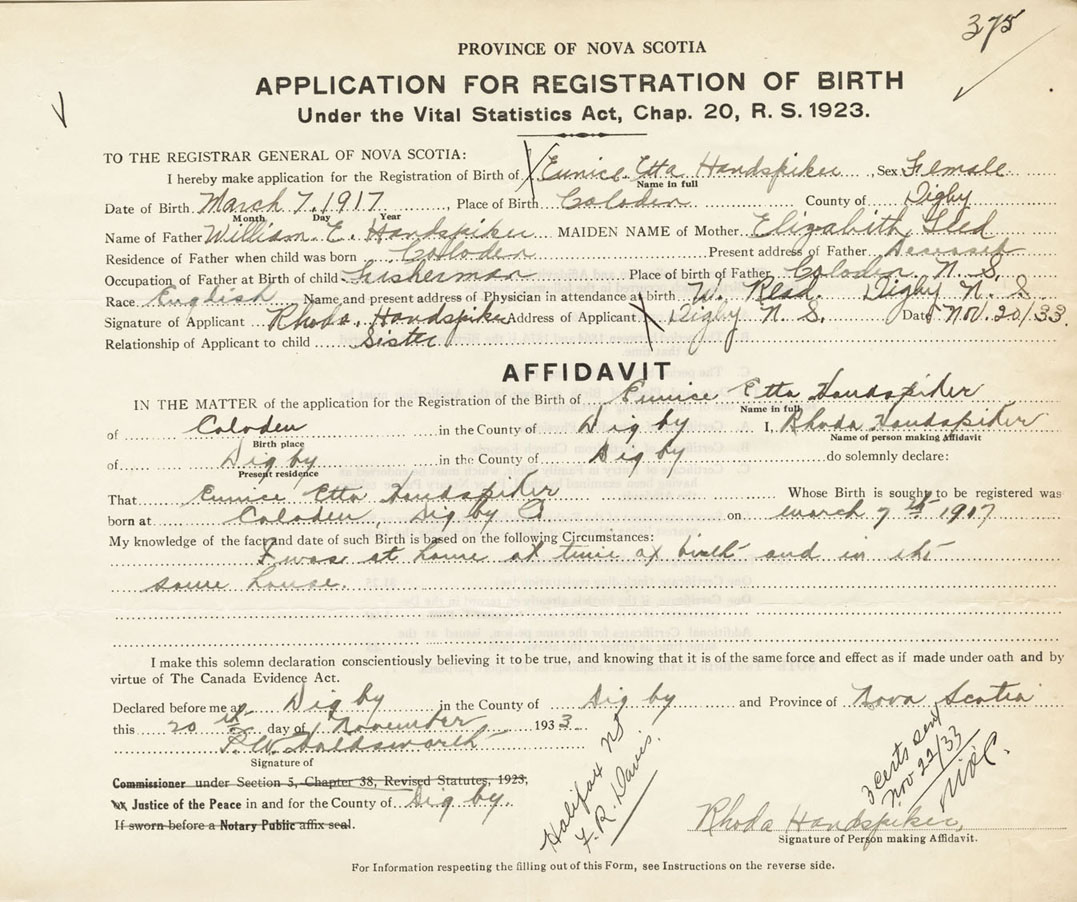 375
PROVINCE OF NOVA SCOTIA
APPLICATION FOR REGISTRATION OF BIRTH
Under the Vital Statistics Act, Chap. 20, R. S. 1923.
TO THE REGISTRAR GENERAL OF NOVA SCOTIA:
I hereby make application for the Registration of Birth of Eunice Etta Handspiker, Sex Female
Name in full
Date of Birth March 7, 1917, Place of Birth Coloden County of Digby
Month Day Year
Name of Father William E. Handspiker MAIDEN NAME of Mother Elizabeth
Residence of Father when child was born Colloden Present address of Father Deceased
Occupation of Father at Birth of child Fisherman Place of birth of Father Coloden N. S.
Race English Name and present address of Physician in attendance at birth W. Read. Digby N. S.
Signature of Applicant Rhoda Handspiker Address of Applicant Digby N. S. Date Nov. 20/33.
Relationship of Applicant to child Sister
AFFIDAVIT
IN THE MATTER of the application for the Registration of the Birth of Eunice Etta Handspiker
Name in full
of Coloden in the County of Digby I, Rhoda Handspiker
Birth place Name of person making Affidavit
of Digby in the County of Digby do solemnly declare:
Present residence
That Eunice Etta Handspiker Whose Birth is sought to be registered was
born at Coloden, Digby Co on March 7th 1917
My knowledge of the fact and date of such Birth is based on the following Circumstances:
I was at home at time of birth and in the
same house.
I make this solemn declaration conscientiously believing it to be true, and knowing that it is of the same force and effect as if made under oath and by
virtue of The Canada Evidence Act.
Declared before me at Digby in the County of Digby and Province of Nova Scotia
this 20th day of November 1933
Holdsworth
Signature of
Commissioner under Section 5, Chapter 38, Revised Statutes, 1923,
Justice of the Peace in and for the County of Digby.
If sworn before a Notary Public affix seal.
Halifax NS
F. R. Davis.
3 certs sent
Nov 22/33
Rhoda Handspiker,
Signature of Person making Affidavit.
For Information respecting the filling out of this Form, see Instructions on the reverse side.